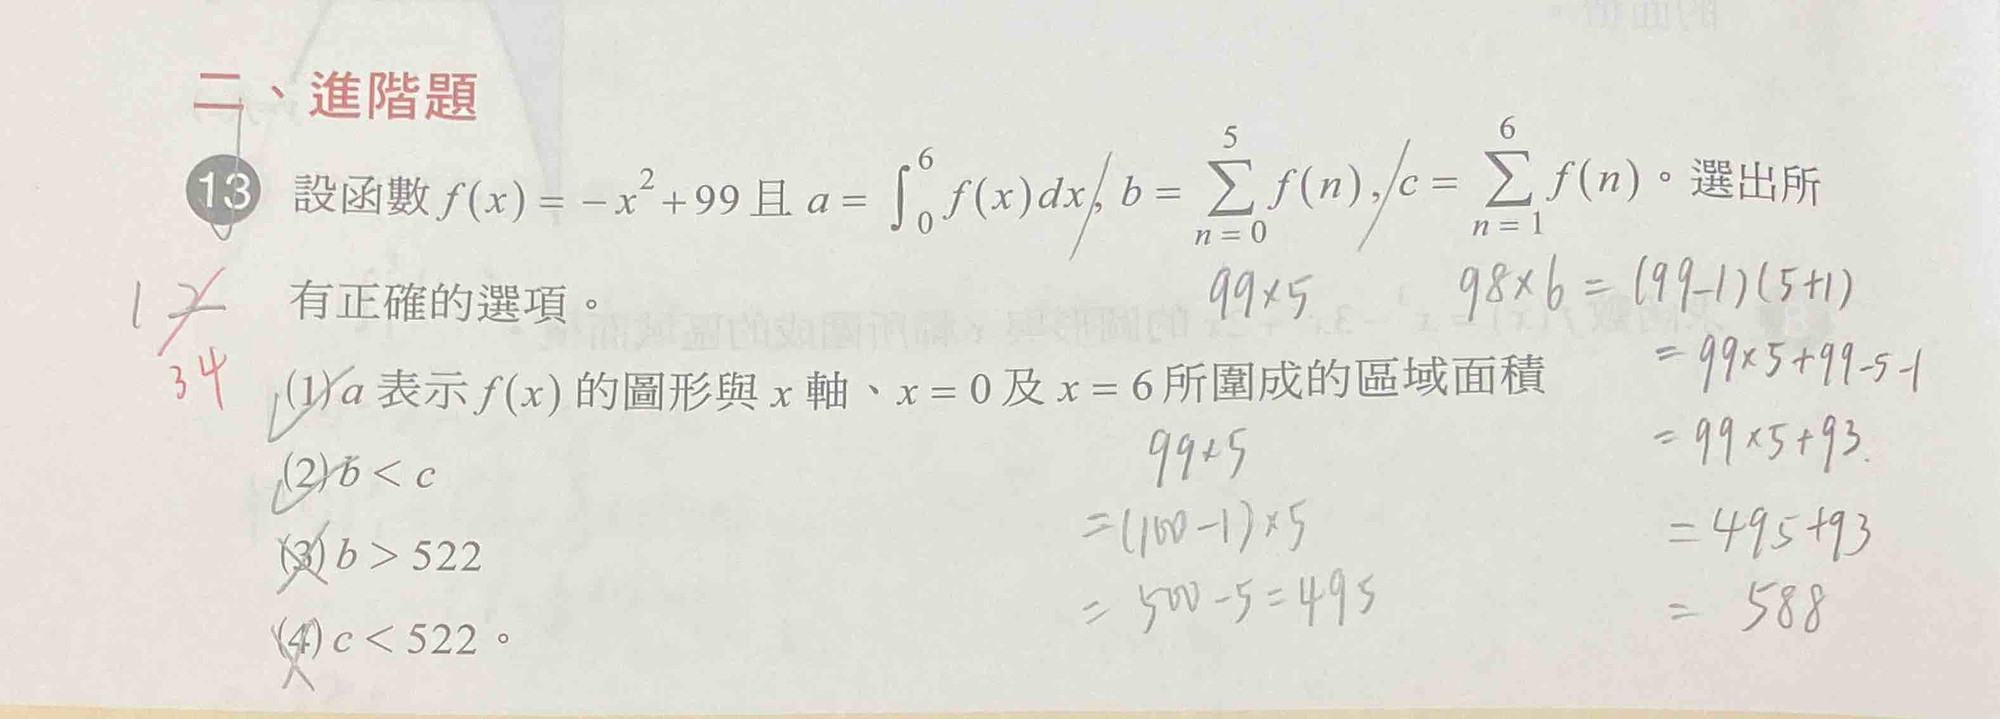 二、進階題
13 設函數 f(x) = −x² + 99 且 a = ∫₀⁶ f(x)dx, b = ∑_{n=0}^{5} f(n), c = ∑_{n=1}^{6} f(n)。選出所
有正確的選項。
99×5
98×6 = (99-1)(5+1)
= 99×5+99-5-1
= 99×5+93.
= 495+93
= 588
12
34
(1) a 表示 f(x) 的圖形與 x 軸、x = 0 及 x = 6 所圍成的區域面積
(2) b < c
(3) b > 522
(4) c < 522。
99×5
= (100-1)×5
= 500-5=495